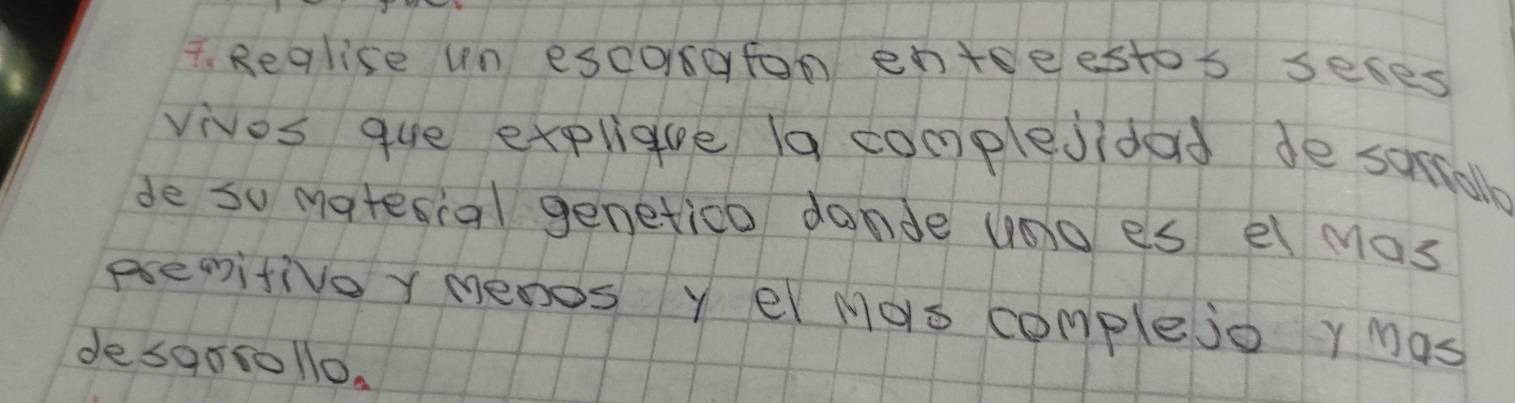 7. Realise un escarafon entre estos seres
vivos que explique la complejidad desarrollo
de su material genetico donde uno es el mas
premitivo y menos y el mas complejo y mas
desarrollo.